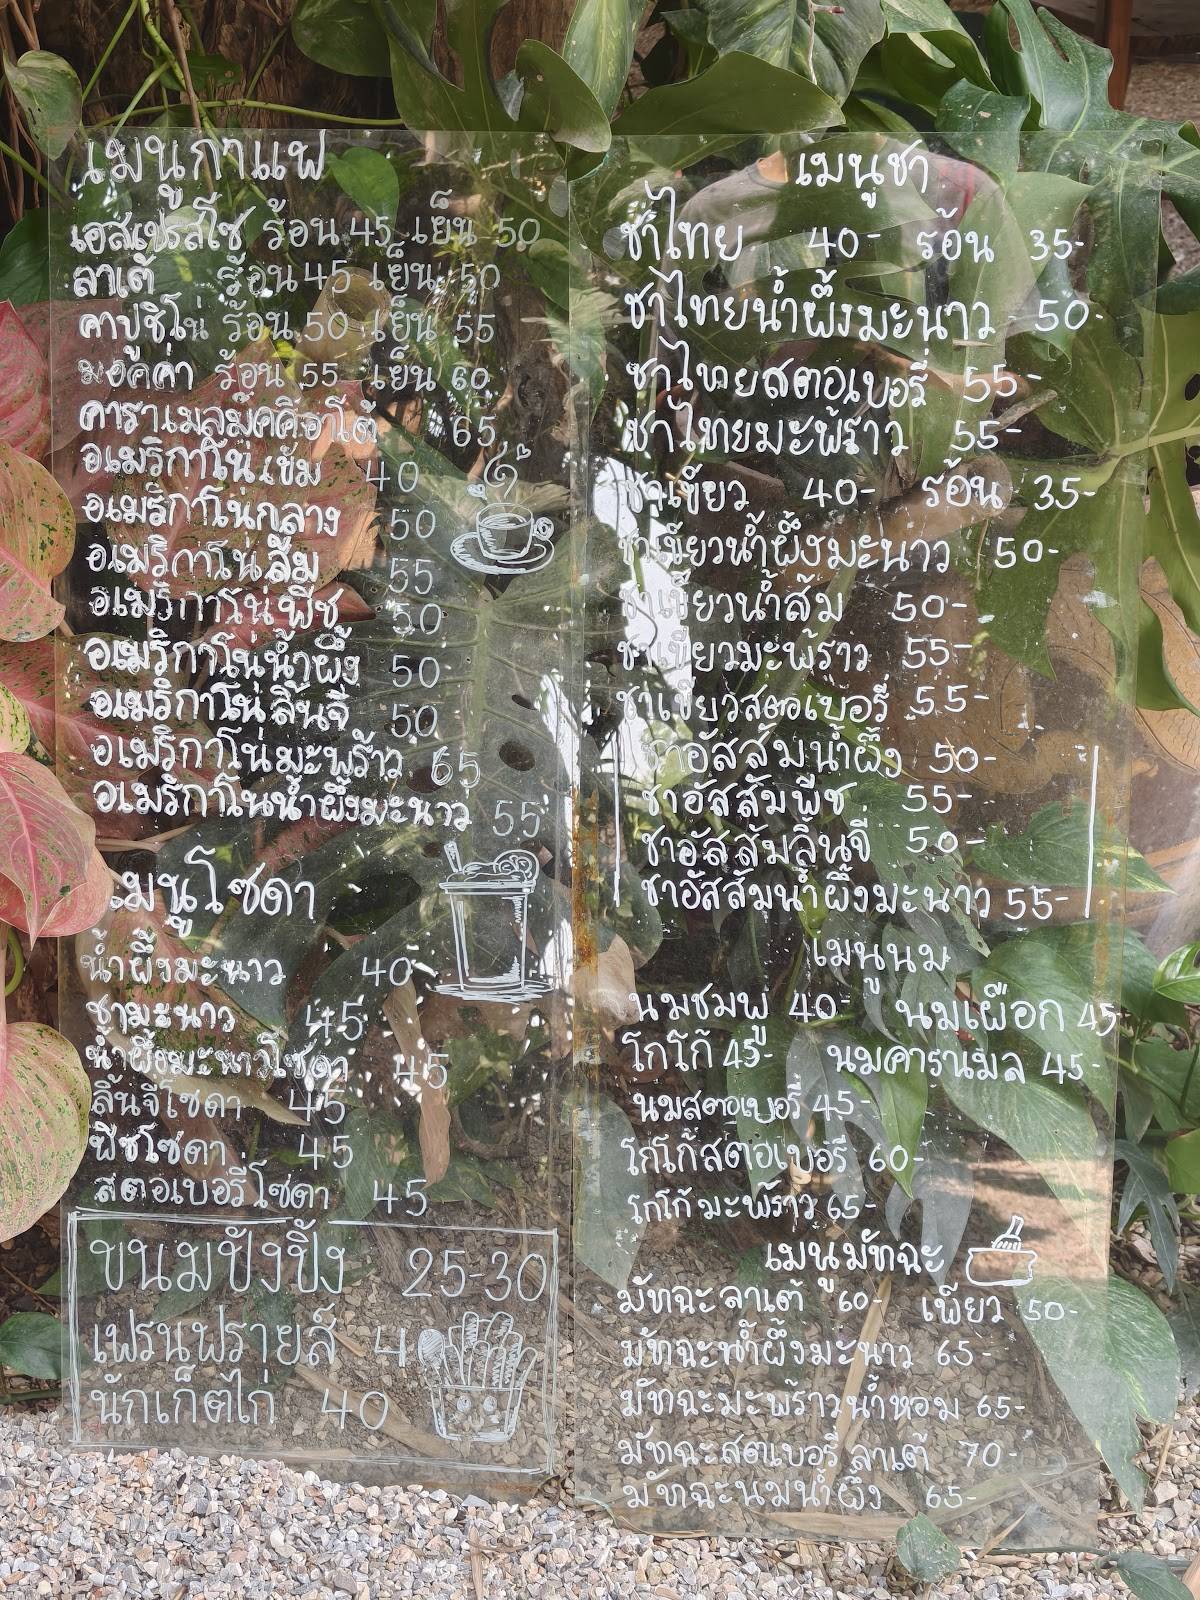 เมนูกาแฟ
เอสเปรสโซ่ ร้อน 45 เย็น 50
ลาเต้ ร้อน 45 เย็น 50
คาปูชิโน่ ร้อน 50 เย็น 55
มอคค่า ร้อน 55 เย็น 60
คาราเมลมัคคิอาโต้ 65
อเมริกาโน่เข้ม 40
อเมริกาโน่กลาง 50
อเมริกาโน่ส้ม 55
อเมริกาโน่พีช 50
อเมริกาโน่น้ำผึ้ง 50
อเมริกาโน่ลิ้นจี่ 50
อเมริกาโน่มะพร้าว 65
อเมริกาโนน้ำผึ้งมะนาว 55
เมนูโซดา
น้ำผึ้งมะนาว 40
ชามะนาว 45
น้ำผึ้งมะนาวโซดา 45
ลิ้นจี่โซดา 45
พีชโซดา 45
สตอเบอรี่โซดา 45
ขนมปังปิ้ง 25-30
เฟรนฟรายส์ 40
นักเก็ตไก่ 40
เมนูชา
ชาไทย 40- ร้อน 35-
ชาไทยน้ำผึ้งมะนาว 50-
ชาไทยสตอเบอรี่ 55-
ชาไทยมะพ้ราว 55-
ชาเขียว 40- ร้อน 35-
ชาเขียวน้ำผึ้งมะนาว 50-
ชาเขียวน้ำส้ม 50-
ชาเขียวมะพ้ราว 55-
ชาเขียวสตอเบอรี่ 55-
ชาอัสสัมน้ำผึ้ง 50-
ชาอัสสัมพีช 55-
ชาอัสสัมลิ้นจี่ 50-
ชาอัสสัมน้ำผึ้งมะนาว 55-
เมนูนม
นมชมพู 40- นมเผือก 45
โกโก้ 45- นมคาราเมล 45-
นมสตอเบอรี่ 45-
โกโก้สตอเบอรี่ 60-
โกโก้มะพร้าว 65-
เมนูมัทฉะ
มัทฉะลาเต้ 60- เพียว 50-
มัทฉะน้ำผึ้งมะนาว 65-
มัทฉะมะพร้าวน้ำหอม 65-
มัทฉะสตเบอรี่ลาเต้ 70-
มัทฉะนมน้ำผึ้ง 65-